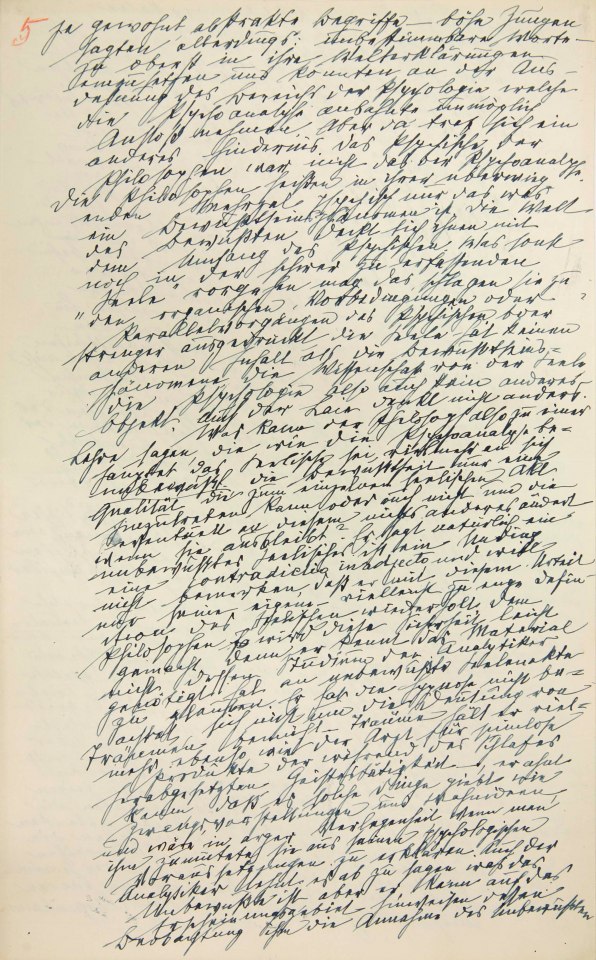 5
ja gewohnt abstrakte Begriffe – böse Zungen
sagten allerdings: unbestimmbare Worte –
zu oberst in ihre Welterklärungen
einzusetzen und konnten an der Aus-
dehnung des Bereichs der Psychologie welche
die Psychoanalyse anbahnte unmöglich
Anstoß nehmen. Aber da traf sich ein
anderes Hindernis. Das Psychische der
Philosophen war nicht das der Psychoanalyse.
Die Philosophen heißen in ihrer überwieg-
enden Mehrzal psychisch nur das was
ein Bewußtseinsphänomen ist. Die Welt
des Bewußten deckt sich ihnen mit
dem Umfang des Psychischen. Was sonst
noch in der schwer zu erfassenden
"Seele" vorgehen mag das schlagen sie zu
den organischen Vorbedingungen oder
Parallelvorgängen des Psychischen oder
strenger ausgedrückt die Seele hat keinen
anderen Inhalt als die Bewusstseins-
phänomene die Wissenschaft von der Seele
die Psychologie also auch kein anderes
Objekt. Auch der Laie denkt nicht anders.
Was kann der Philosoph also zu einer
Lehre sagen, die wie die Psychoanalyse be-
hauptet das Seelische sei vielmehr an sich
unbewußt, die Bewusstheit nur eine
Qualität die zum einzelnen seelischen Akt
hinzutreten kann oder auch nicht und die
eventuell an diesem nichts anderes ändert
wenn sie ausbleibt? Er sagt natürlich ein
unbewußtes Seelisches ist ein Unding
eine contradictio in adjecto und will
nicht bemerken, daß er mit diesem Urteil
nur seine eigene – vielleicht zu enge Defin-
ition des Seelischen wiederholt. Dem
Philosophen wird diese Sicherheit leicht
gemacht, denn er kennt das Material
nicht dessen Studium den Analytiker
genötigt hat an unbewußte Seelenakte
zu glauben. Er hat die Hypnose nicht be-
achtet sich nicht um die Deutung von
Träumen bemüht – Träume hält er viel-
mehr ebenso wie der Arzt für sinnlose
Produkte der während des Schlafes
herabgesetzten Geistestätigkeit –, er ahnt
kaum daß es solche Dinge giebt wie
Zwangsvorstellungen und Wahnideen
und wäre in arger Verlegenheit wenn man
ihm zumutete sie aus seinen psychologischen
Voraussetzungen zu erklären. Auch der
Analytiker lehnt es ab zu sagen was das
Unbewußte ist aber er kann auf das
Erscheinungsgebiet hinweisen dessen
Beobachtung ihm die Annahme des Unbewußten